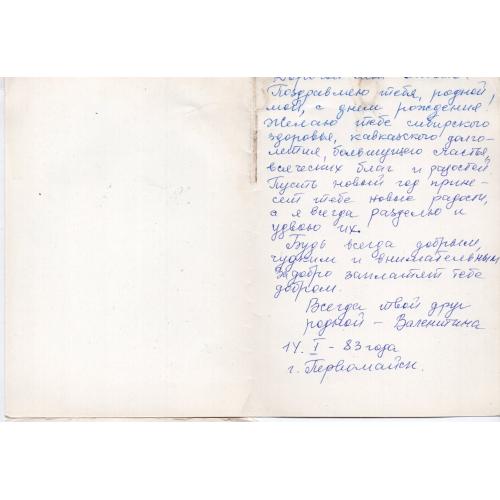 Дорогой
Поздравляю тебя, родной,
мой, с днем рождения
Желаю тебе сибирского
здоровья, кавказского долго-
летия, большущего счастья,
всяческих благ и радостей.
Пусть новый год прине-
сет тебе новые радости,
а я всегда разделю и
удвою их.
Будь всегда добрым,
чутким и внимательным
За добро заплатят тебе
добром.
Всегда твой друг
родной - Валентина
14. I - 83 года
г. Первомайск.